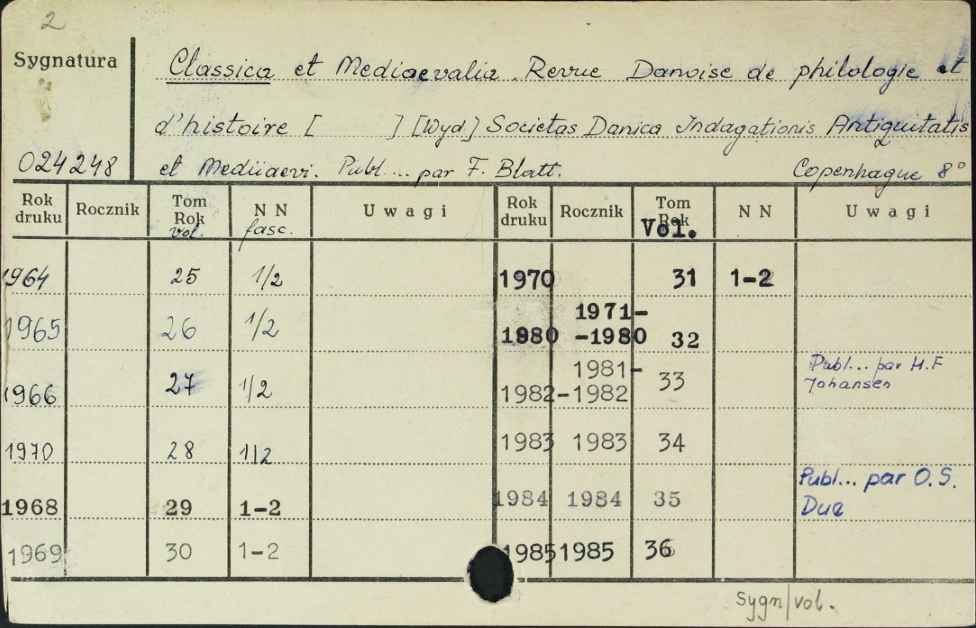 2
Sygnatura
Classica et Mediaevalia. Revue Danoise de philologie et
d'histoire [ ] [Wyd] Societas Danica Indagationis Antiquitatis
024248 et Mediiaevi. Publ... par F. Blatt. Copenhague 8°
Rok druku Rocznik Tom Rok vol. N N fasc. Uwagi Rok druku Rocznik Tom Rok Vol. N N Uwagi
1964 25 1/2 1970 31 1-2
1965 26 1/2 1980 1971-1980 32
1966 27 1/2 1982 1981-1982 33 Publ... par H.F Johansen
1970 28 1/2 1983 1983 34
1968 29 1-2 1984 1984 35 Publ... par O.S. Due
1969 30 1-2 1985 1985 36
Sygn/vol.